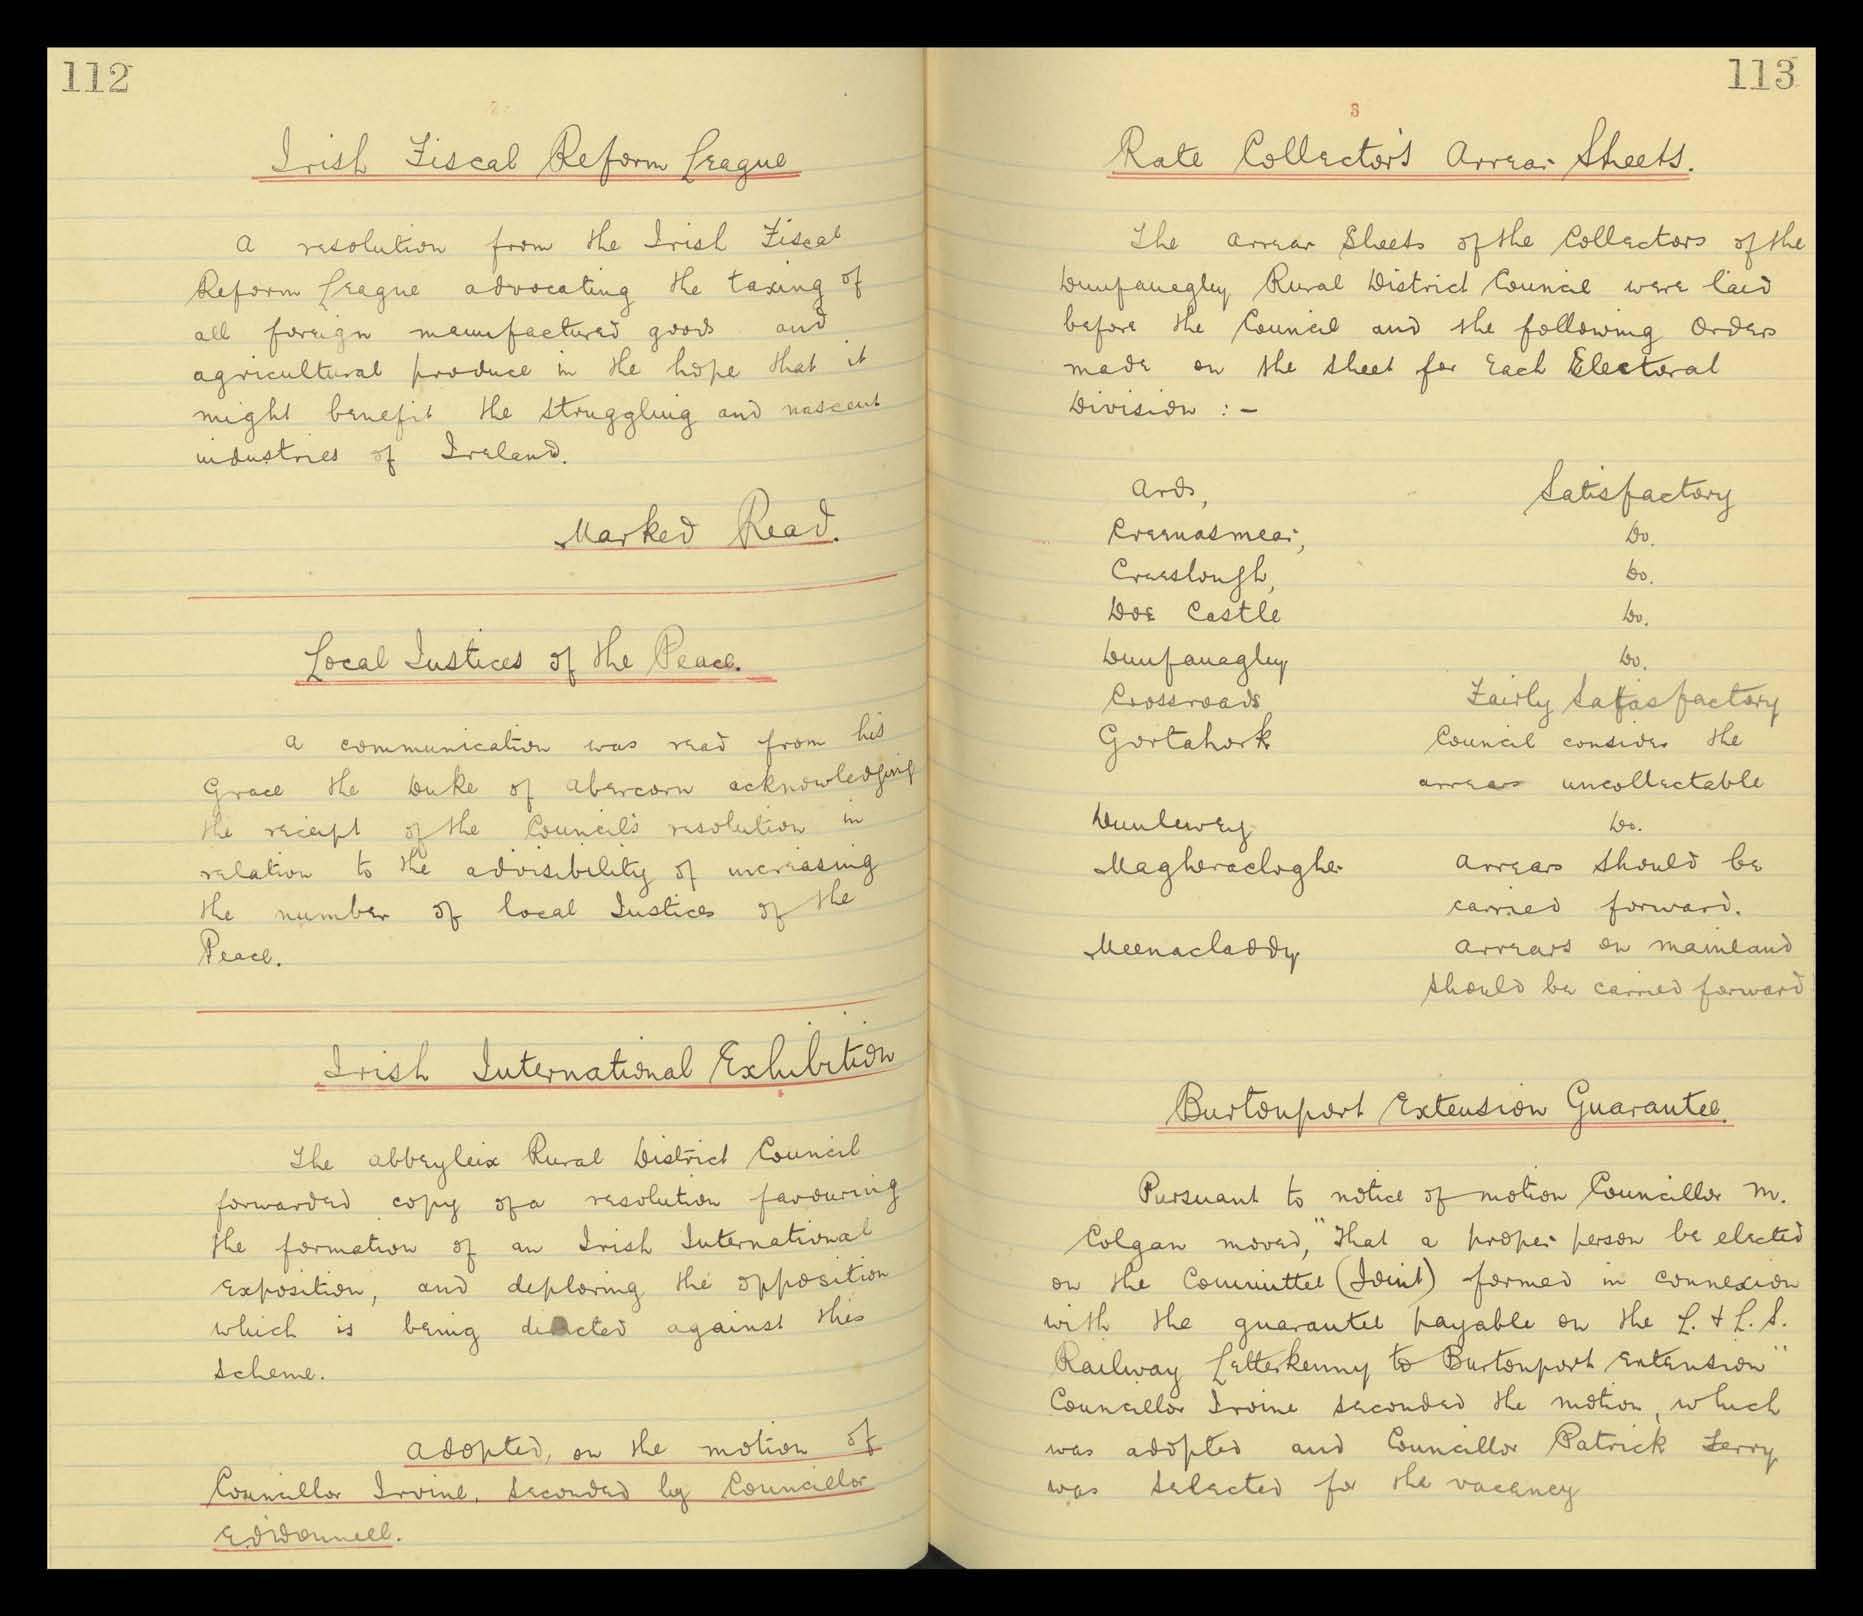 112
2
Irish Fiscal Reform League
A resolution from the Irish Fiscal
Reform League advocating the taxing of
all foreign manufactured goods and
agricultural produce in the hope that it
might benefit the struggling and nascent
industries of Ireland.
Marked Read.
Local Justices of the Peace.
A communication was read from his
Grace the Duke of Abercorn acknowledging
the receipt of the Council's resolution in
relation to the advisibility of increasing
the number of local Justices of the
Peace.
Irish International Exhibition
The Abbeyleix Rural District Council
forwarded copy of a resolution favouring
the formation of an Irish International
Exposition, and deploring the opposition
which is being against this
scheme.
Adopted, on the motion of
Councillor Irvine, seconded by Councillor
E. O'Donnell.
113
3
Rate Collector's Arrear Sheets.
The Arrear Sheets of the Collectors of the
Dunfanaghy Rural District Council were laid
before the Council and the following Orders
made on the sheet for each Electoral
Division :-
Ards, Satisfactory
Creenasmear, Do.
Creeslough, Do.
Doe Castle Do.
Dunfanaghy Do.
Crossroads Fairly Satisfactory
Gortahork Council consider the
arrears uncollectable
Dunlewey Do.
Magheraclogher Arrears should be
carried forward.
Meenacladdy Arrears on mainland
should be carried forward
Burtonport Extension Guarantee.
Pursuant to notice of motion Councillor M.
Colgan moved, "That a proper person be elected
on the Committee (Joint) formed in connexion
with the guarantee payable on the L. & L. S.
Railway Letterkenny to Burtonport extension"
Councillor Irvine seconded the motion, which
was adopted and Councillor Patrick Ferry
was selected for the vacancy